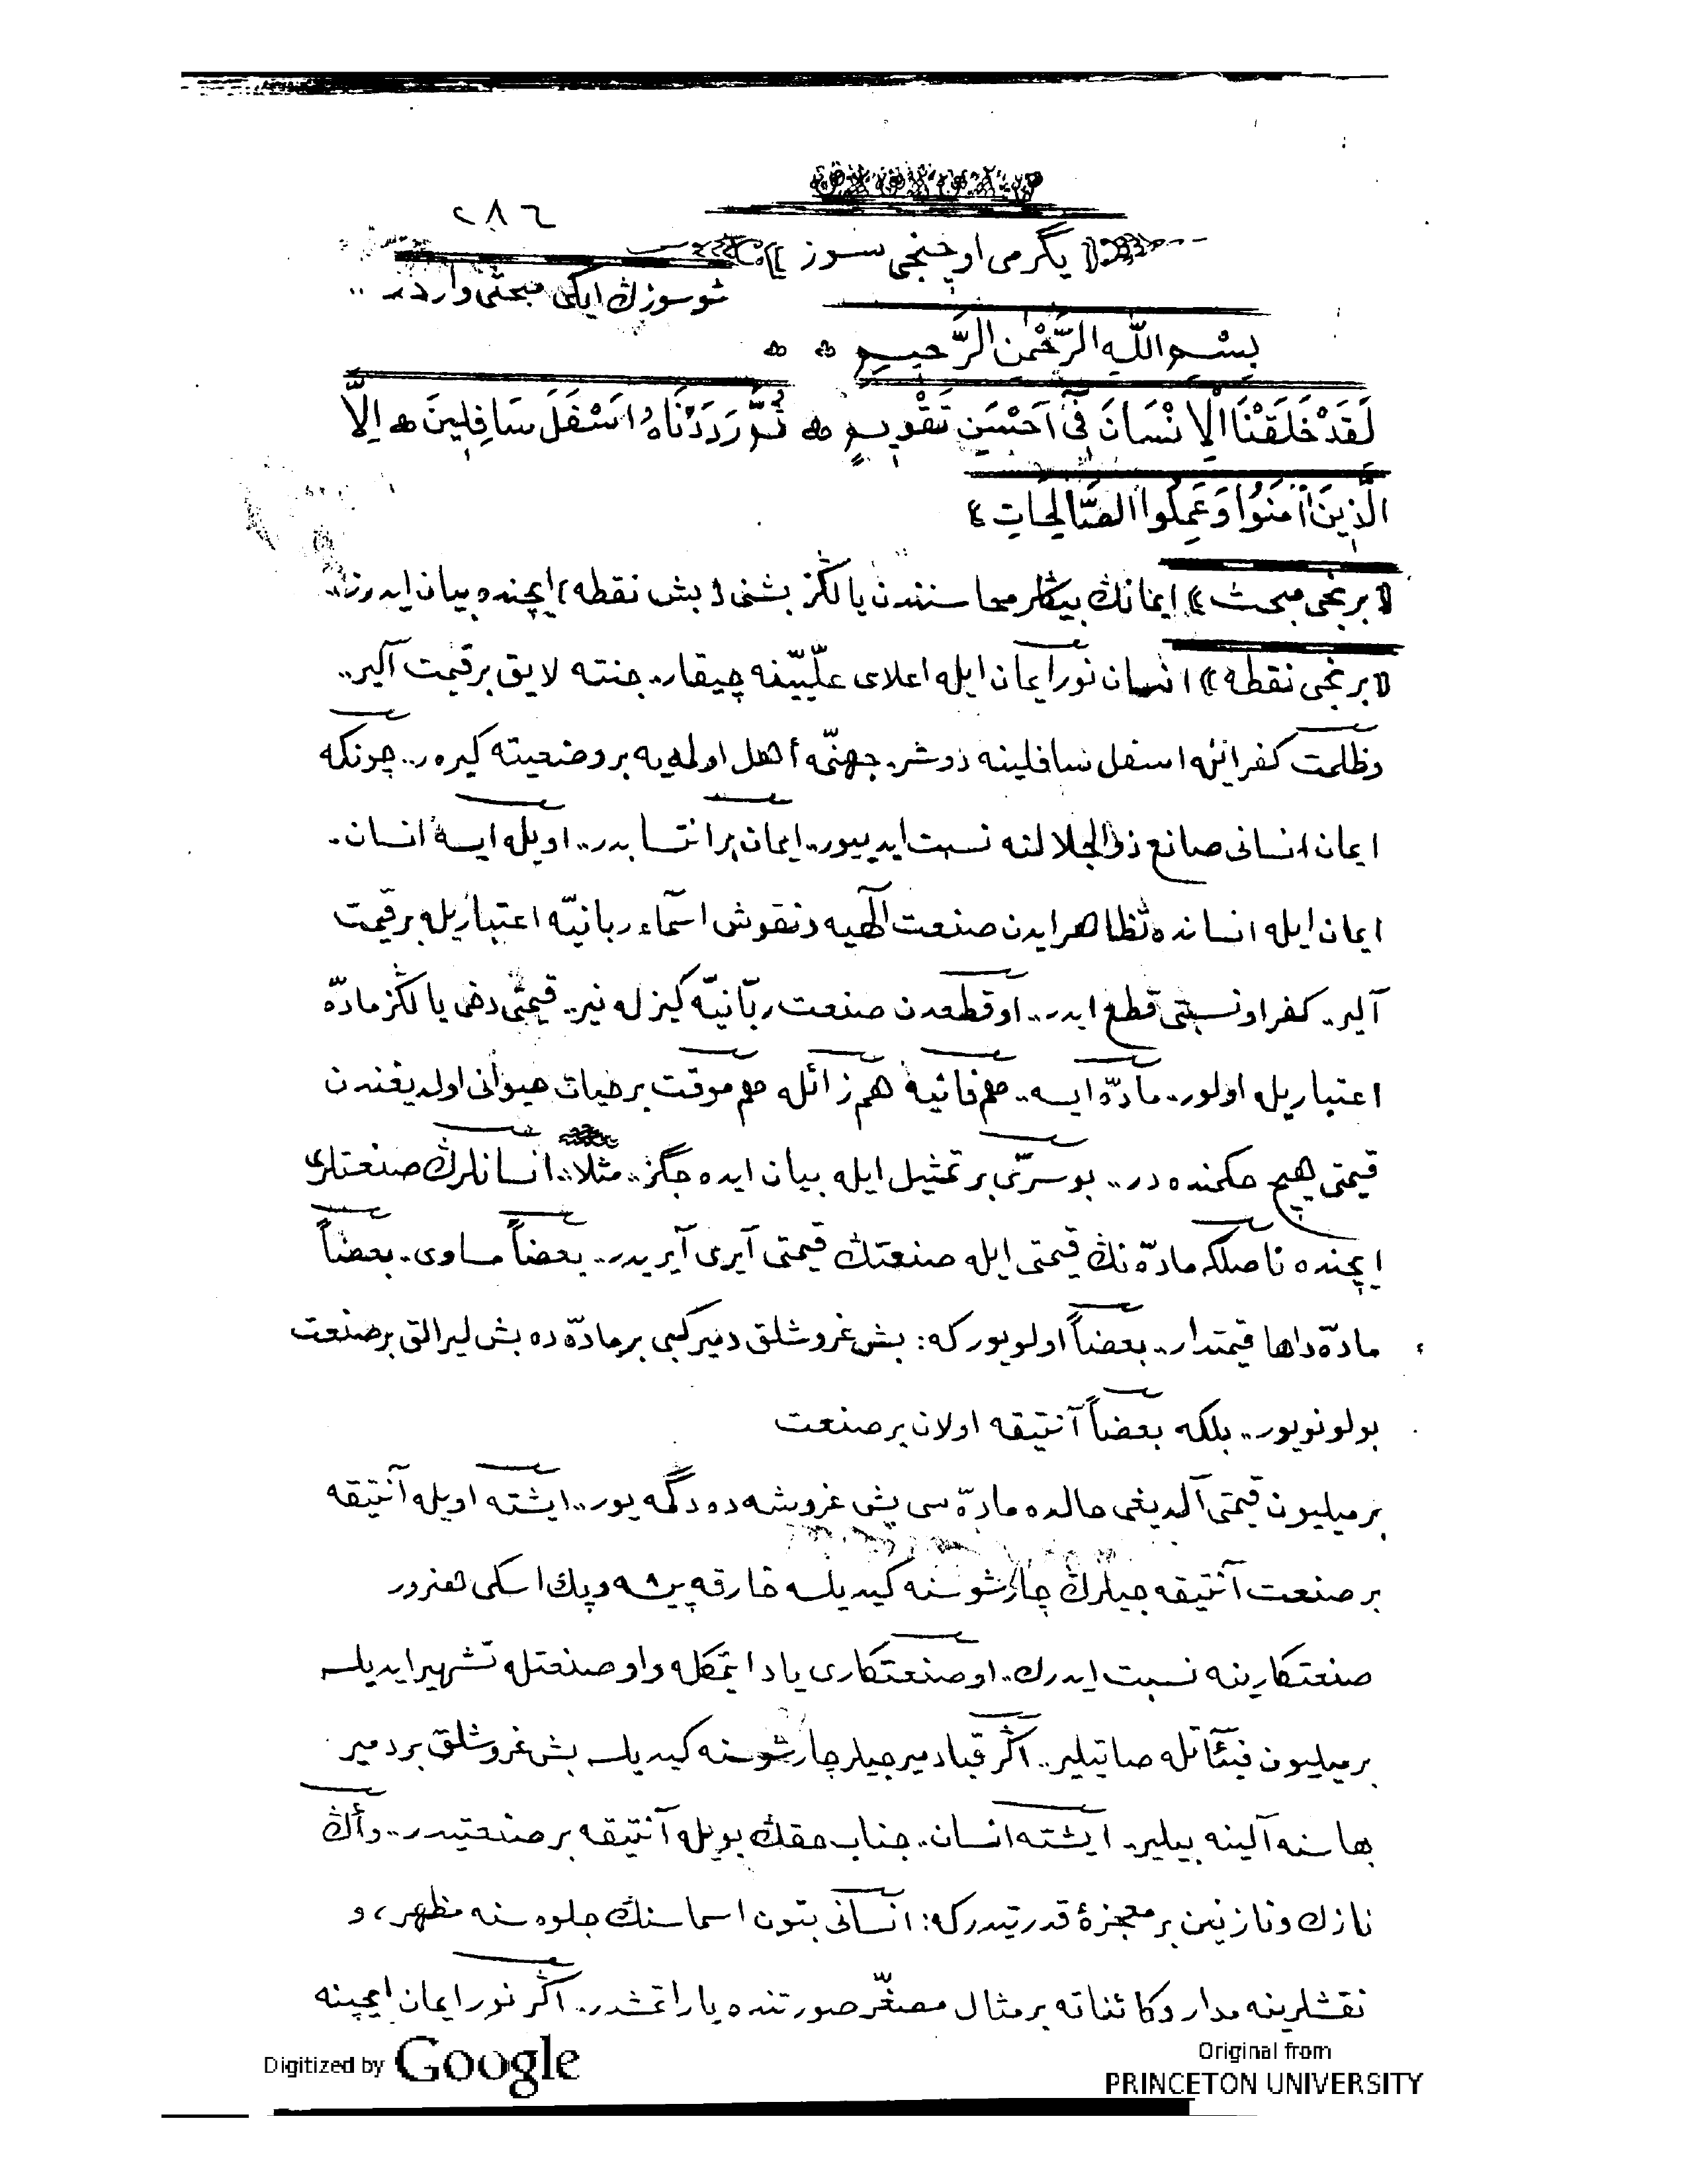 ٢٨٦
﴿ يگرمی اوچنجی سوز ﴾
شو سوزڭ ایكی مبحثی واردر ..
بِسْمِ اللّٰهِ الرَّحْمٰنِ الرَّحِيمِ
لَقَدْ خَلَقْنَا الْاِنْسَانَ فِٓى اَحْسَنِ تَقْوِيمٍ ثُمَّ رَدَدْنَاهُ اَسْفَلَ سَافِلِينَ اِلَّا
الَّذِينَ اٰمَنُوا وَعَمِلُوا الصَّالِحَاتِ
﴿ برنجی مبحث ﴾ ایمانڭ بیڭلر محاسنندن یالڭز بشنی ﴿ بش نقطه ﴾ ایچنده بیان ایدرز..
﴿ برنجی نقطه ﴾ انسان نور ایمان ایله اعلای علّیّینه چیقار.. جنته لایق بر قیمت آلیر..
وظلمت كفر ایله اسفل سافلینه دوشر. جهنّمه أهل اوله‌جق بر وضعیته گیرر.. چونكه
ایمان انسانی صانع ذی الجلالنه نسبت ایدییور.. ایمان بر انتسابدر.. اویله ایسه انسان.
ایمان ایله انسانده تظاهر ایدن صنعت الٓهیه ونقوش اسمآء ربانیّه اعتباریله بر قیمت
آلیر.. كفر او نسبتی قطع ایدر.. او قطعدن صنعت ربّانیّه گیزله‌نیر.. قیمتی دخی یالڭز مادّه
اعتباریله اولور.. مادّه ایسه.. هم فانیه هم زائله هم موقت بر حیات حیوانی اولدیغندن
قیمتی هیچ حكمنده‌در.. بو سرّی بر تمثیل ایله بیان ایده‌جگز.. مثلا.. انسانلرڭ صنعتلری
ایچنده ناصلكه مادّه‌نڭ قیمتی ایله صنعتڭ قیمتی آیری آیریدر.. بعضاً مساوی. بعضاً
مادّه داها قیمتدار.. بعضاً اولویور كه: بش غروشلق دمیر كبی بر مادّه ده بش لیرالق بر صنعت
بولونویور.. بلكه بعضاً آنتیقه اولان بر صنعت
بر میلیون قیمتی آلدیغی حالده مادّه‌سی بش غروشه ده دگمه‌یور.. ایشته اویله آنتیقه
بر صنعت آنتیقه‌جیلرڭ چارشوسنه گیدیلسه خارقه پیشه وپك اسكی هنرور
صنعتكارینه نسبت ایدرك.. او صنعتكاری یاد ایتمكله واو صنعتله تشهیر ایدیلسه
بر میلیون فیئاتله صاتیلیر.. اگر قبا دمیرجیلر چارشوسنه گیدیلسه بش غروشلق بر دمیر
بهاسنه آلینه بیلیر.. ایشته انسان.. جناب حقڭ بویله آنتیقه بر صنعتیدر.. وأڭ
نازك ونازنین بر معجزۀ قدرتیدر كه: انسانی بتون اسماسنڭ جلوه‌سنه مظهر، و
نقشلرینه مدار وكائناته بر مثال مصغّر صورتنده یاراتمشدر.. اگر نور ایمان ایچینه
Digitized by Google
Original from
PRINCETON UNIVERSITY